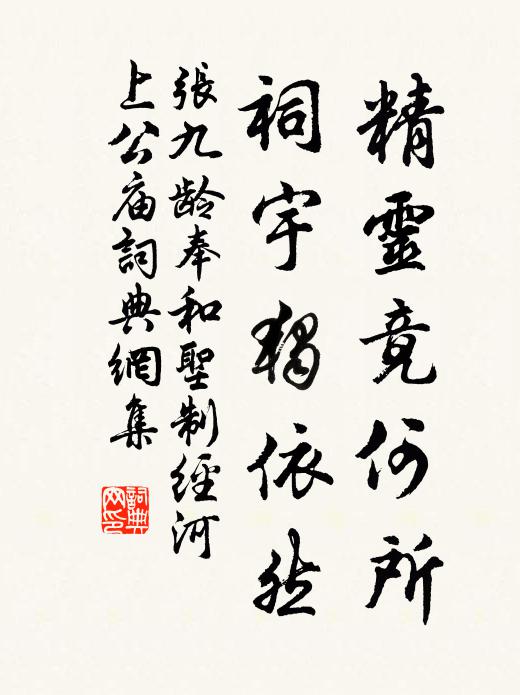 精靈竟何所
祠宇独依然
張九龄奉和聖制經河
上公庙詞典網集
詞典
网印